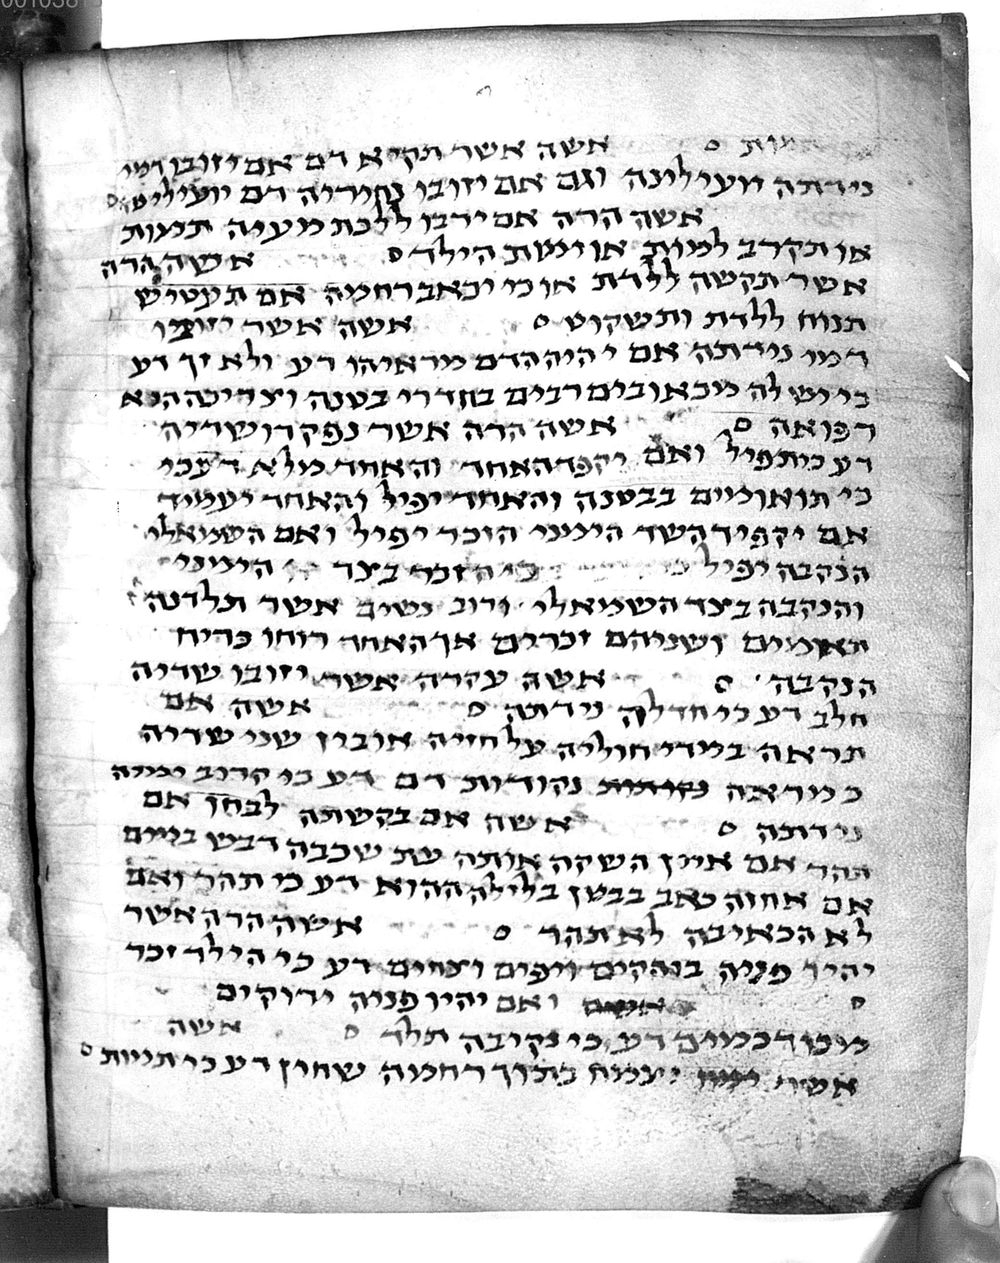 001038
מות ס אשה אשר תקיא דם אם יזובו דמי
נידתה יועילינה וגם אם יזובו נחיריה דם יועילינה ס
אשה הרה אם ירבו ללכת מעיה תמות
או תקרב למות או ימות הילד ס אשה הרה
אשר תקשה ללדת או כי יכאב רחמה אם תעטיש
תנוח ללדת ותשקוט ס אשה אשר יזובו
דמי נידתה אם יהיה הדם מראיהו רע ולא זך דע
כי יש לה מכאובים רבים בחדרי בטנה וצריכה היא
רפואה ס אשה הרה אשר נפקדו שדיה
דע כי תפיל ואם יפקד האחד והאחד מלא דע כי
כי תואומים בבטנה והאחד יפיל והאחד יעמוד
אם יקפיד השד הימני הזכר יפיל ואם השמאלי
הנקבה יפיל כי הזכר בצד הימני
והנקבה בצד השמאלי ורוב נשים אשר תלדנה
תאומים ושניהם זכרים אך האחד רוחו כרוח
הנקבה ס אשה עקרה אשר יזובו שדיה
חלב דע כי חדלה נידתה ס אשה אם
תראה במדי חוליה על חזיה או בין שני שדיה
כמראה נקודות דם דע כי קרוב ימיה
נידתה ס אשה אם בקשתה לבחן אם
תהר אם אין השקה אותה עת שכבה דבש במים
אם אחזה כאב בבטן בלילה ההוא דע כי תהר ואם
לא הכאיבה לא תהר ס אשה הרה אשר
יהיו פניה בוהקים ויפים וצחים דע כי הילד זכר
ס ואם יהיו פניה ירוקים
דע כי נקיבה תלד ס אשה
אשר יצמח בתוך רחמה שחין דע כי תמות ס